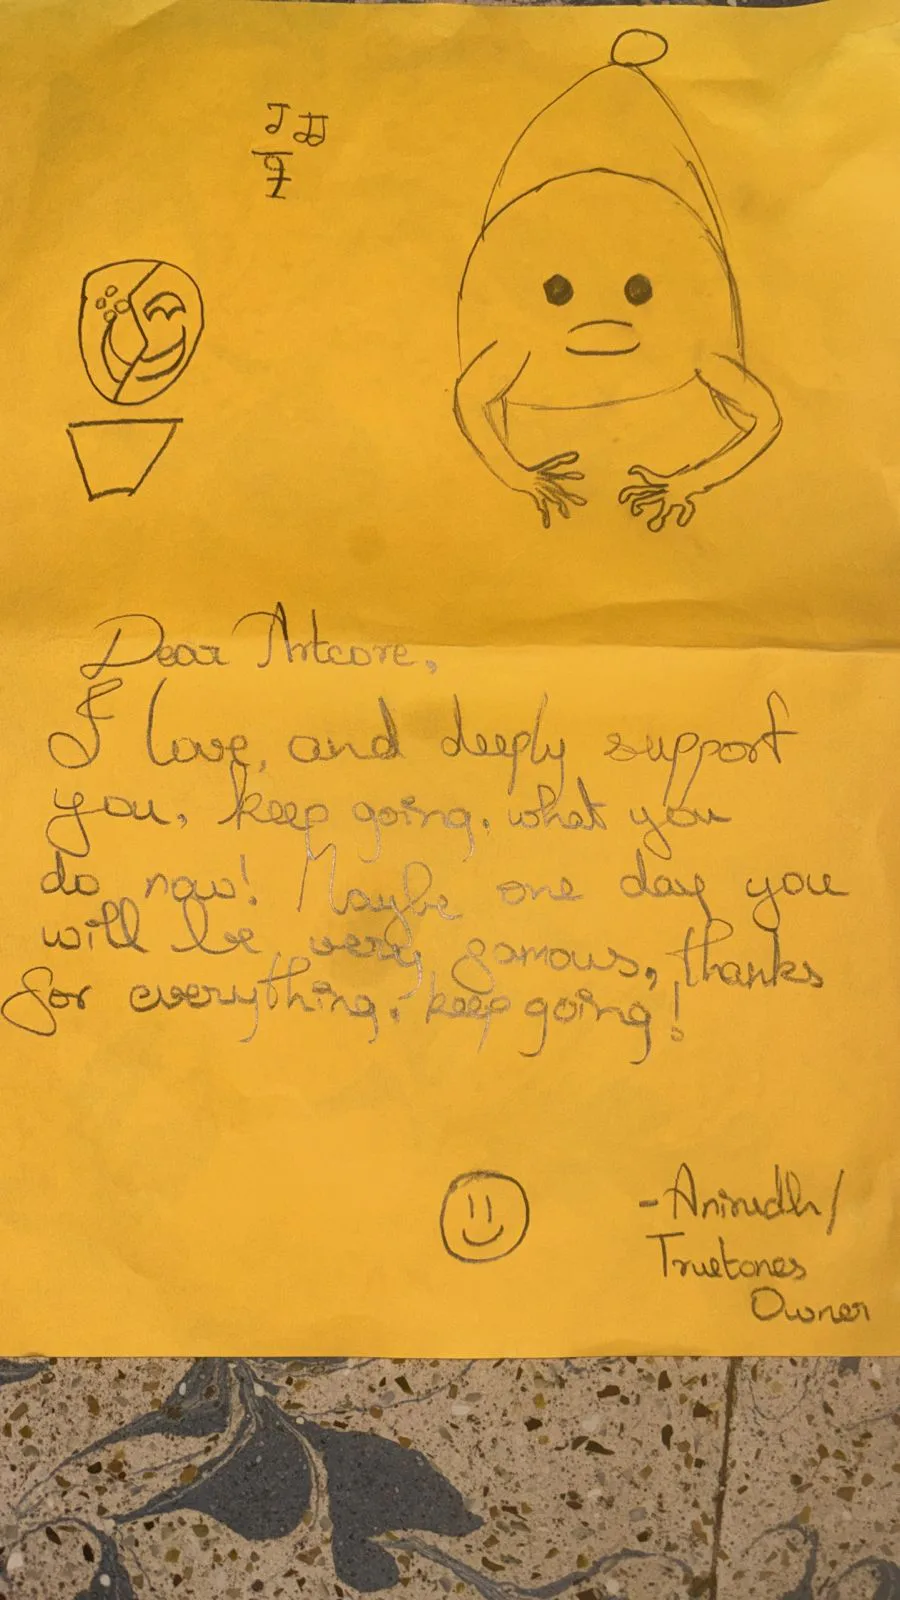 Dear Artcore,
I love, and deeply support
you, keep going, what you
do now! Maybe one day you
will be very famous, thanks
for everything, keep going!
-Anirudh/
Truetones
Owner